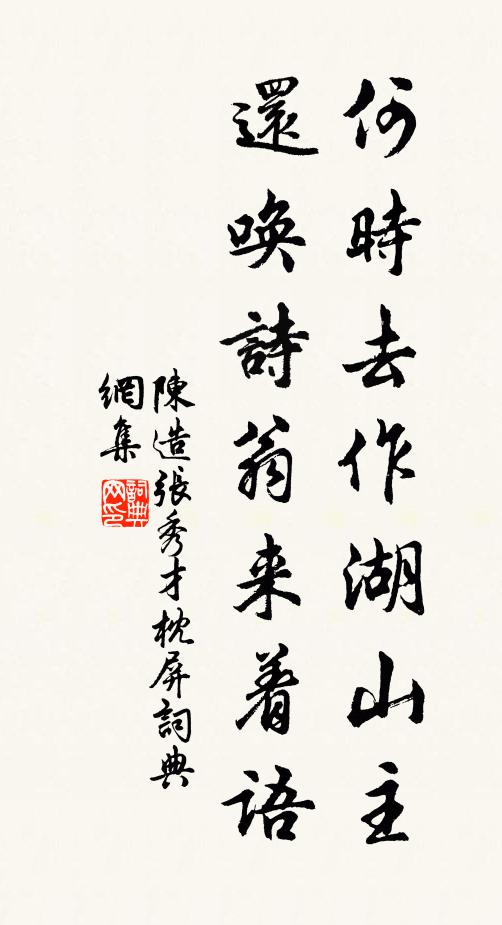 何時去作湖山主
還喚詩翁来着語
陳造張秀才枕屏詞典
網集
詞典網印